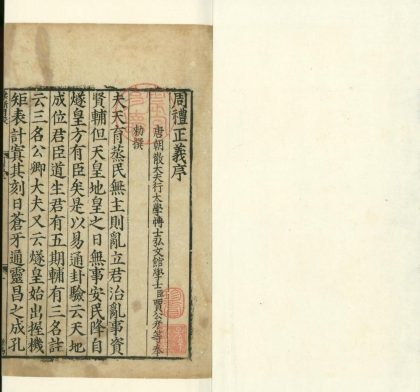 周禮正義序
唐朝散大夫行太學博士弘文館學士臣賈公彥等奉
勑撰
夫天育蒸民無主則亂立君治亂事資
賢輔但天皇地皇之日無事安民降自
燧皇方有臣矣是以易通卦驗云天地
成位君臣道生君有五期輔有三名註
云三名公卿大夫又云燧皇始出握機
矩表計寘其刻曰蒼牙通靈昌之成孔